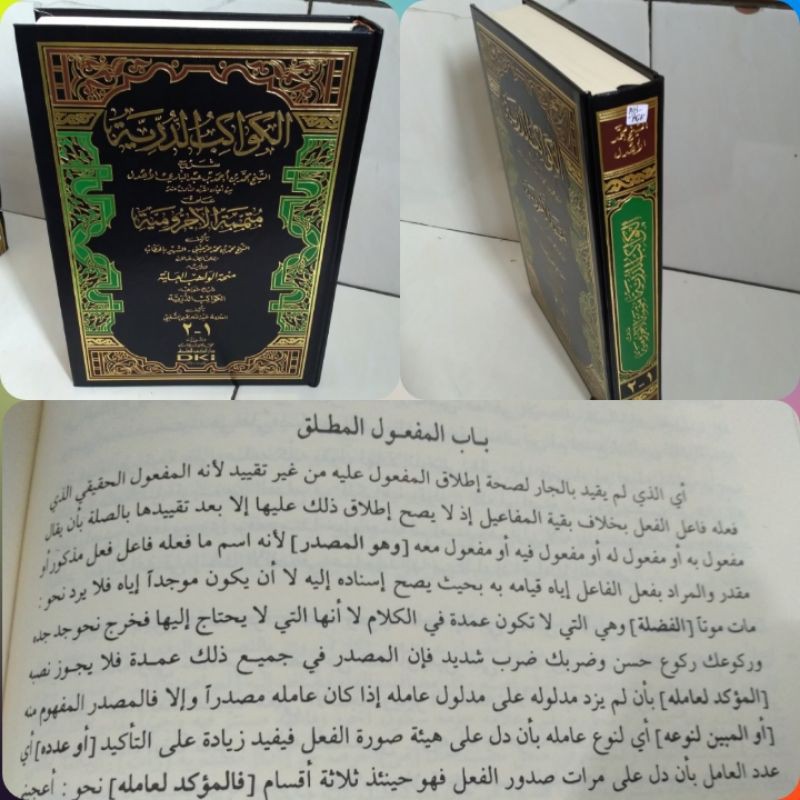 الكواكب الدرية
شرح
الشيخ محمد بن أحمد بن عبد الباري الأهدل
على
متممة الأجرومية
تأليف
الشيخ محمد بن محمد الرعيني الشهير بالحطاب
منحة الواهب العلية
شرح شواهد
الكواكب الدرية
تأليف
١-٢
DKI
الكواكب الدرية
متممة الأجرومية
١-٢
باب المفعول المطلق
أي الذي لم يقيد بالجار لصحة إطلاق المفعول عليه من غير تقييد لأنه المفعول الحقيقي الذي
فعله فاعل الفعل بخلاف بقية المفاعيل إذ لا يصح إطلاق ذلك عليها إلا بعد تقييدها بالصلة بأن يقال
مفعول به أو مفعول له أو مفعول فيه أو مفعول معه [وهو المصدر] لأنه اسم ما فعله فاعل فعل مذكور أو
مقدر والمراد بفعل الفاعل إياه قيامه به بحيث يصح إسناده إليه لا أن يكون موجداً إياه فلا يرد نحو:
مات موتاً [الفضلة] وهي التي لا تكون عمدة في الكلام لا أنها التي لا يحتاج إليها فخرج نحو جد جده
وركوعك ركوع حسن وضربك ضرب شديد فإن المصدر في جميع ذلك عمدة فلا يجوز نصبه
[المؤكد لعامله] بأن لم يزد مدلوله على مدلول عامله إذا كان عامله مصدراً وإلا فالمصدر المفهوم منه
[أو المبين لنوعه] أي لنوع عامله بأن دل على هيئة صورة الفعل فيفيد زيادة على التأكيد [أو عدده] أي
عدد العامل بأن دل على مرات صدور الفعل فهو حينئذ ثلاثة أقسام [فالمؤكد لعامله] نحو: أعجبني